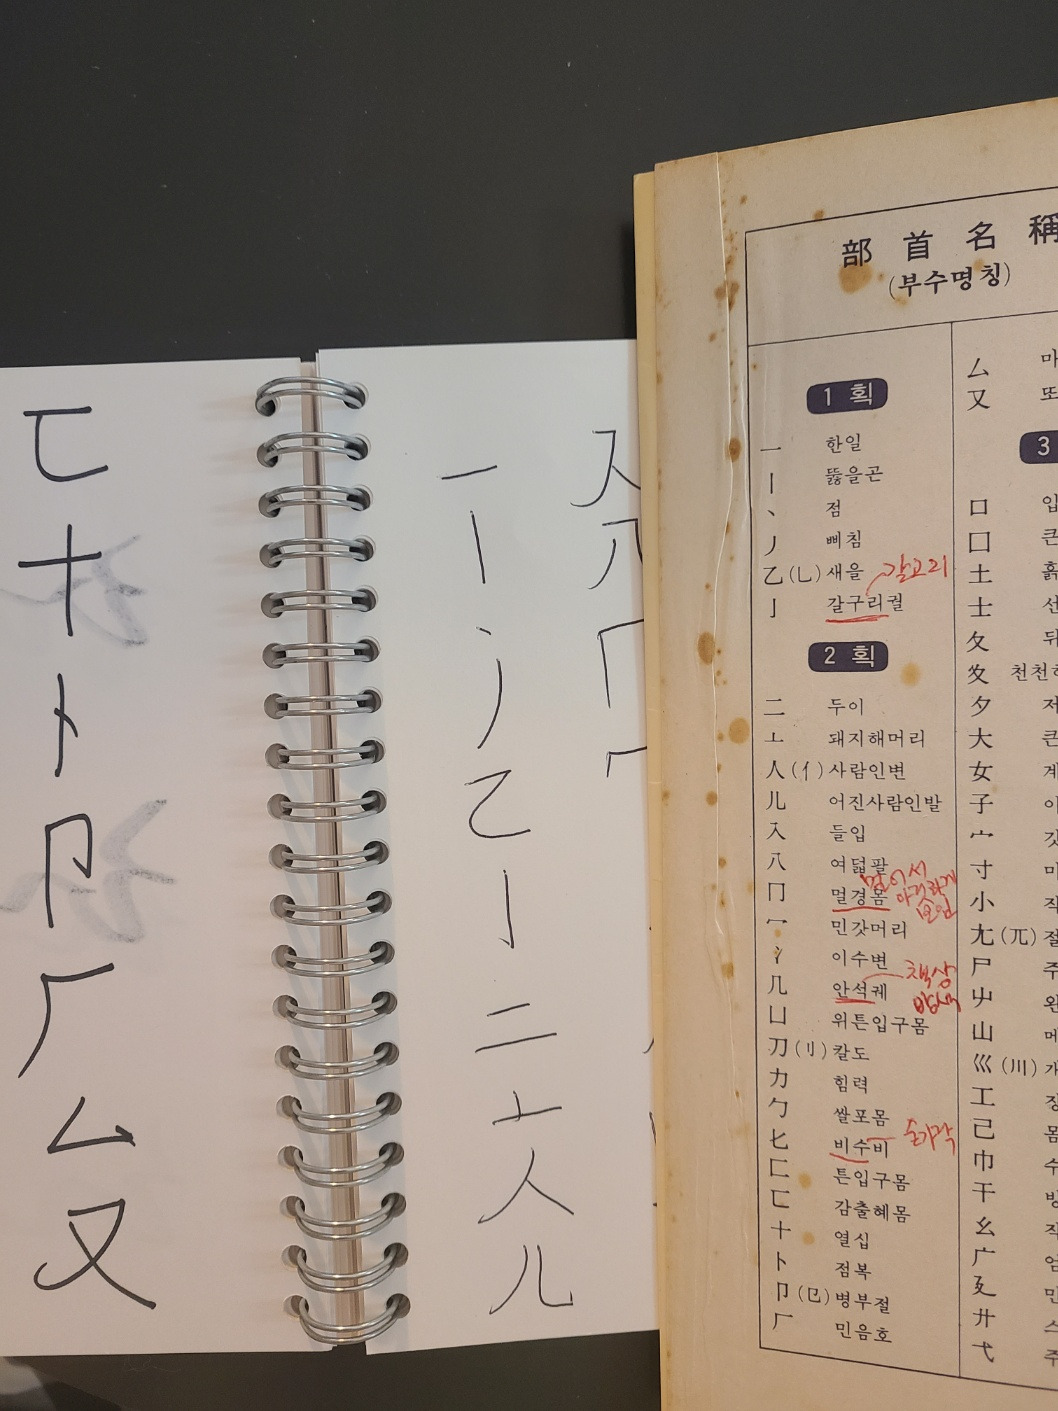 匸
十
卜
卩
厂
厶
又
一
丨
丶
丿
乙
亅
二
亠
人
儿
入
八
冂
冖
部首名稱
(부수명칭)
1 획
一 한일
丨 뚫을곤
丶 점
丿 삐침
乙(乚) 새을 갈고리
亅 갈구리궐
2 획
二 두이
亠 돼지해머리
人(亻) 사람인변
儿 어진사람인발
入 들입
八 여덟팔
冂 멀경몸 멀어서
冖 민갓머리
冫 이수변
几 안석궤 책상
凵 위튼입구몸
刀(刂) 칼도
力 힘력
勹 쌀포몸
匕 비수비 숟가락
匚 튼입구몸
匸 감출혜몸
十 열십
卜 점복
卩(㔾) 병부절
厂 민음호
厶 마
又 또
3
口 입
囗 큰
土 흙
士 선
夂 뒤
夊 천천히
夕 저
大 큰
女 계
子 아
宀 갓
寸 마
小 작
尢(兀) 절
尸 주
屮 왼
山 메
巛(川) 개
工 장
己 몸
巾 수
干 방
幺 작
广 엄
廴 민
廾 스
弋 주